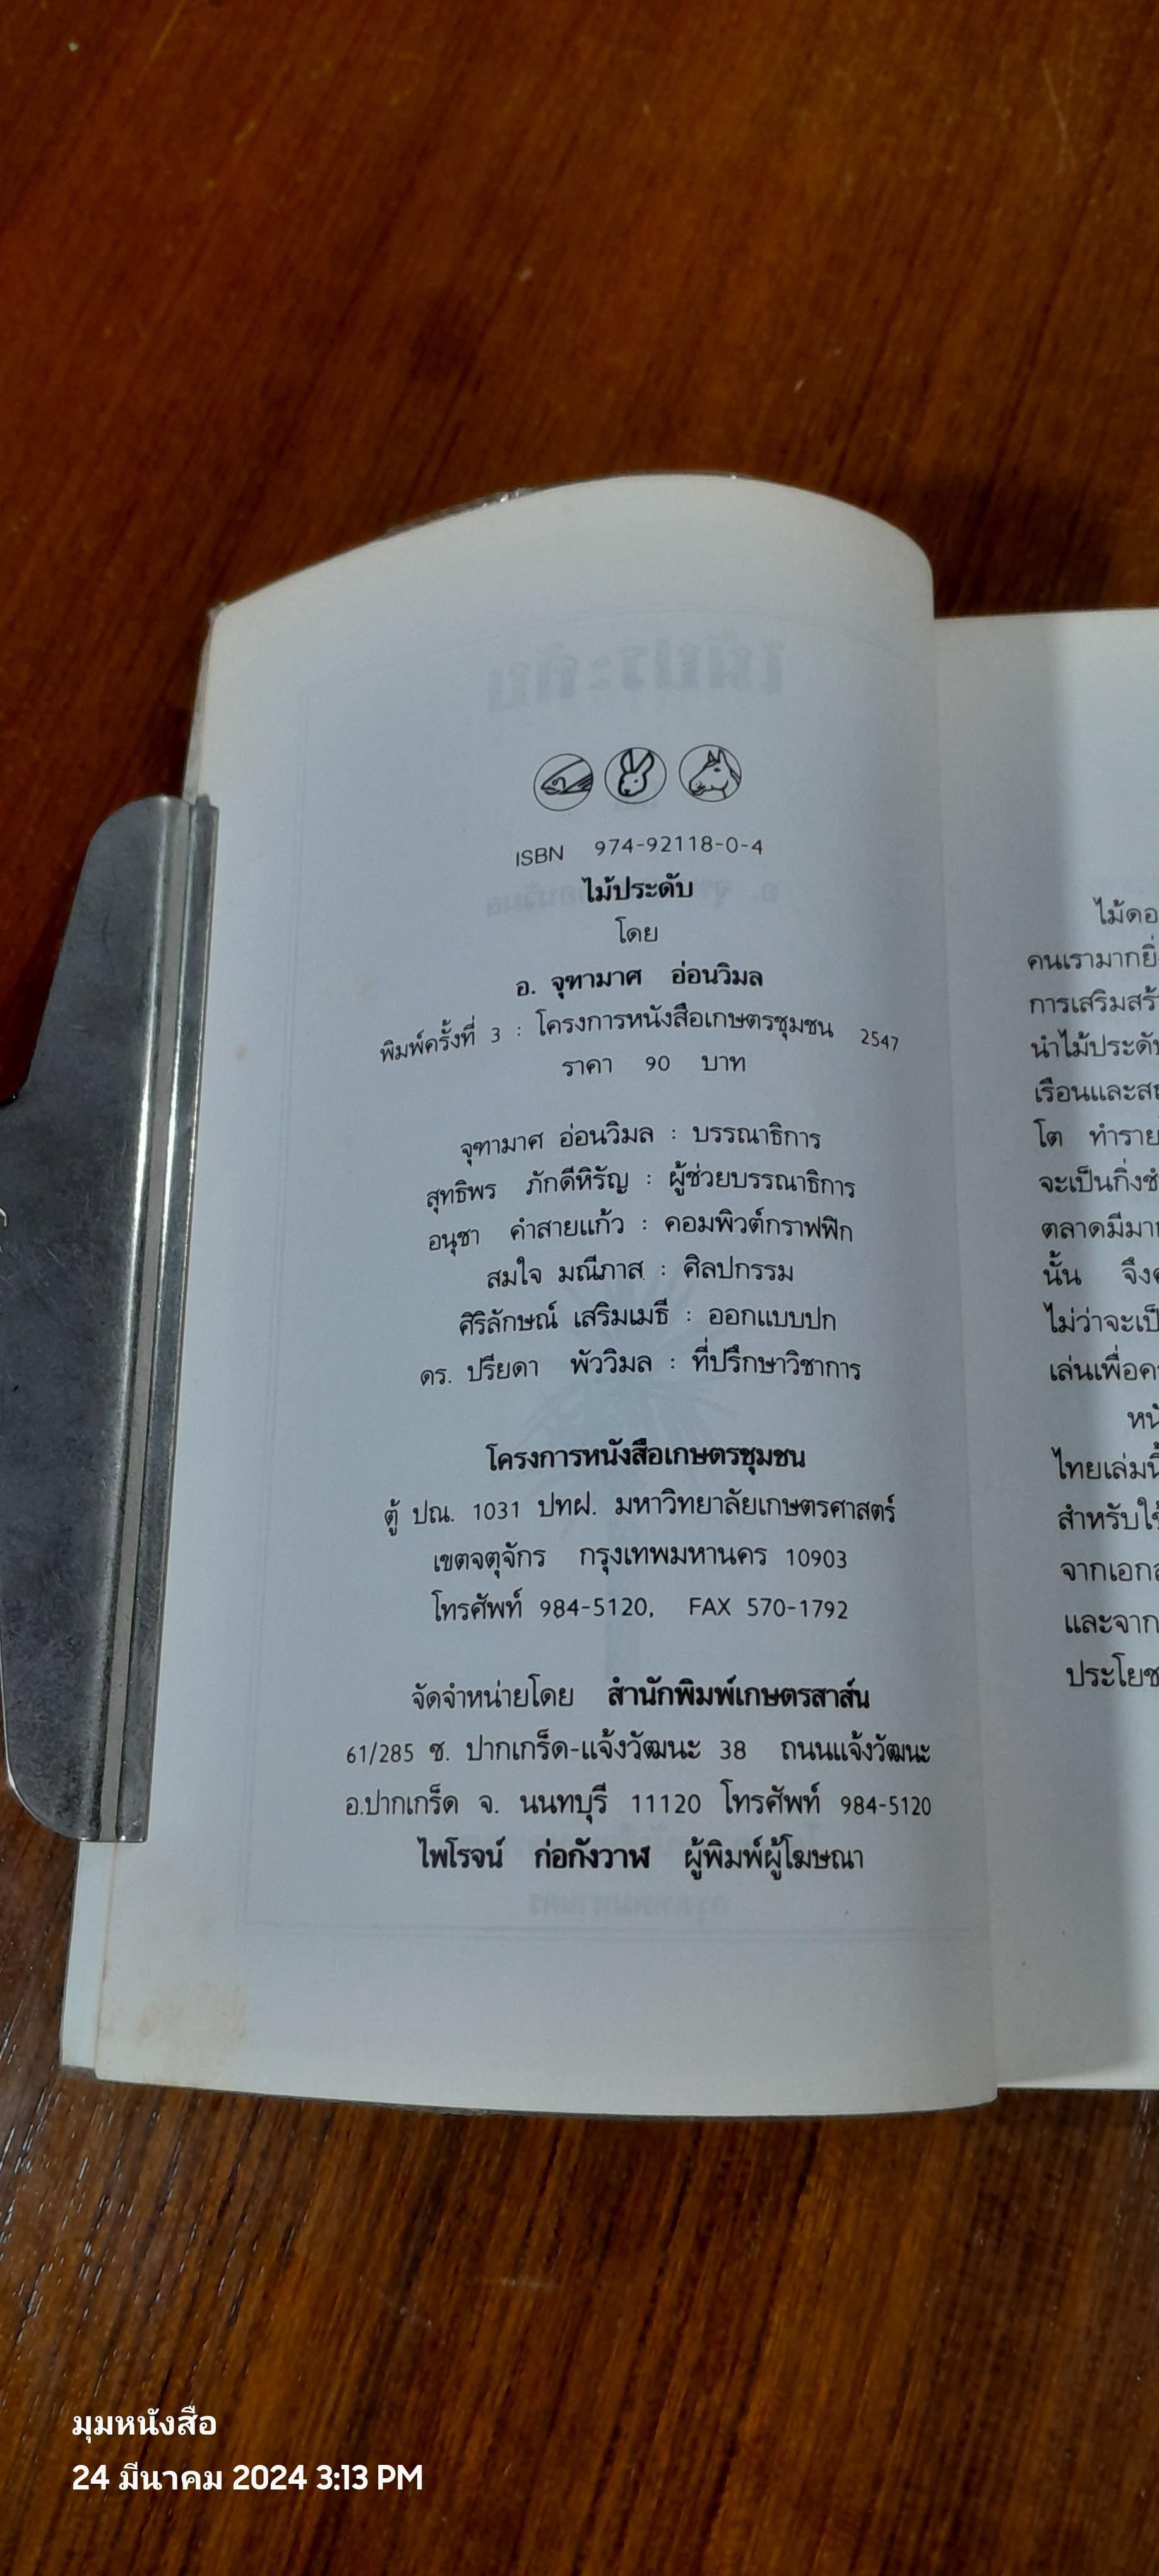 ISBN 974-92118-0-4
ไม้ประดับ
โดย
อ. จุฑามาศ อ่อนวิมล
พิมพ์ครั้งที่ 3 : โครงการหนังสือเกษตรชุมชน 2547
ราคา 90 บาท
จุฑามาศ อ่อนวิมล : บรรณาธิการ
สุทธิพร ภักดีหิรัญ : ผู้ช่วยบรรณาธิการ
อนุชา คำสายแก้ว : คอมพิวต์กราฟฟิก
สมใจ มณีภาส : ศิลปกรรม
ศิริลักษณ์ เสริมเมธี : ออกแบบปก
ดร. ปรียดา พัววิมล : ที่ปรึกษาวิชาการ
โครงการหนังสือเกษตรชุมชน
ตู้ ปณ. 1031 ปทฝ. มหาวิทยาลัยเกษตรศาสตร์
เขตจตุจักร กรุงเทพมหานคร 10903
โทรศัพท์ 984-5120, FAX 570-1792
จัดจำหน่ายโดย สำนักพิมพ์เกษตรสาส์น
61/285 ซ. ปากเกร็ด-แจ้งวัฒนะ 38 ถนนแจ้งวัฒนะ
อ.ปากเกร็ด จ. นนทบุรี 11120 โทรศัพท์ 984-5120
ไพโรจน์ ก่อกังวาฬ ผู้พิมพ์ผู้โฆษณา
ไม้ดอ
คนเรามากยิ่
การเสริมสร้
นำไม้ประดับ
เรือนและสถ
โต ทำราย
จะเป็นกิ่งชำ
ตลาดมีมาก
นั้น จึง
ไม่ว่าจะเป็
เล่นเพื่อค
หนั
ไทยเล่มนี้
สำหรับใช้
จากเอกส
และจาก
ประโยช
มุมหนังสือ
24 มีนาคม 2024 3:13 PM